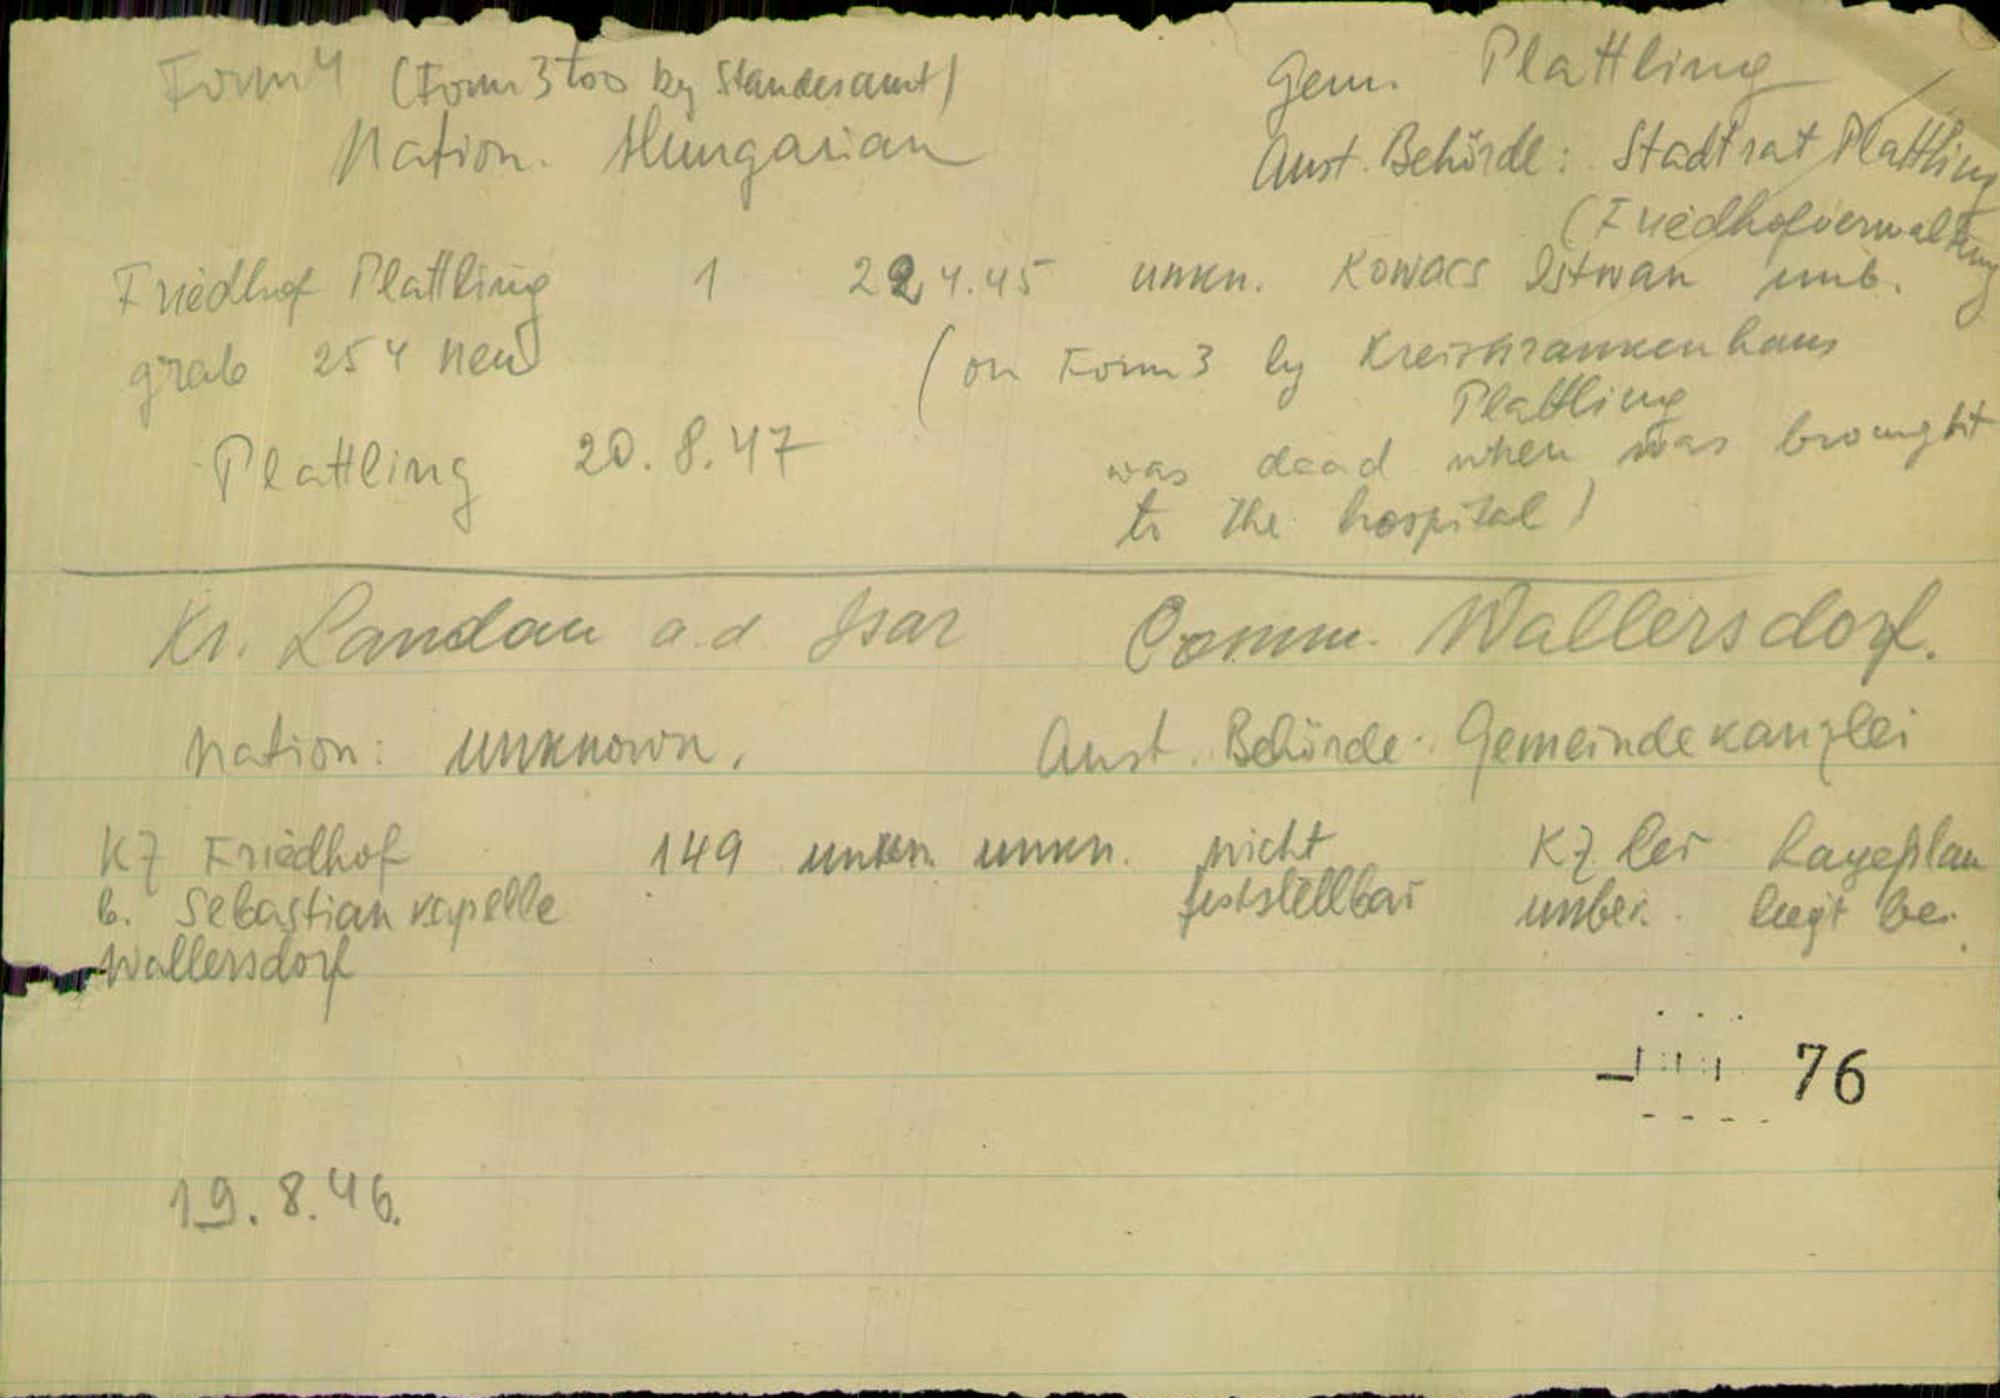 Form 4 (Form 3 too by Standesamt) Gem. Plattling
Nation. Hungarian Aust. Behörde: Stadtrat Plattling
(Friedhofverwaltung
Friedhof Plattling 1 22 4.45 unkn. Kowacs Istwan unb.
grab 254 neu (on Form 3 by Kreiskrankenhaus
Plattling
Plattling 20.8.47 was dead when was brought
to the hospital)
Kr. Landau a.d Isar Comm. Wallersdorf.
Nation: unknown. Aust. Behörde. Gemeindekanzlei
KZ Friedhof 149 unkn. unkn. nicht KZ ler Lageplan
b. Sebastiankapelle feststellbar unbek. liegt bei.
Wallersdorf
76
19.8.46.